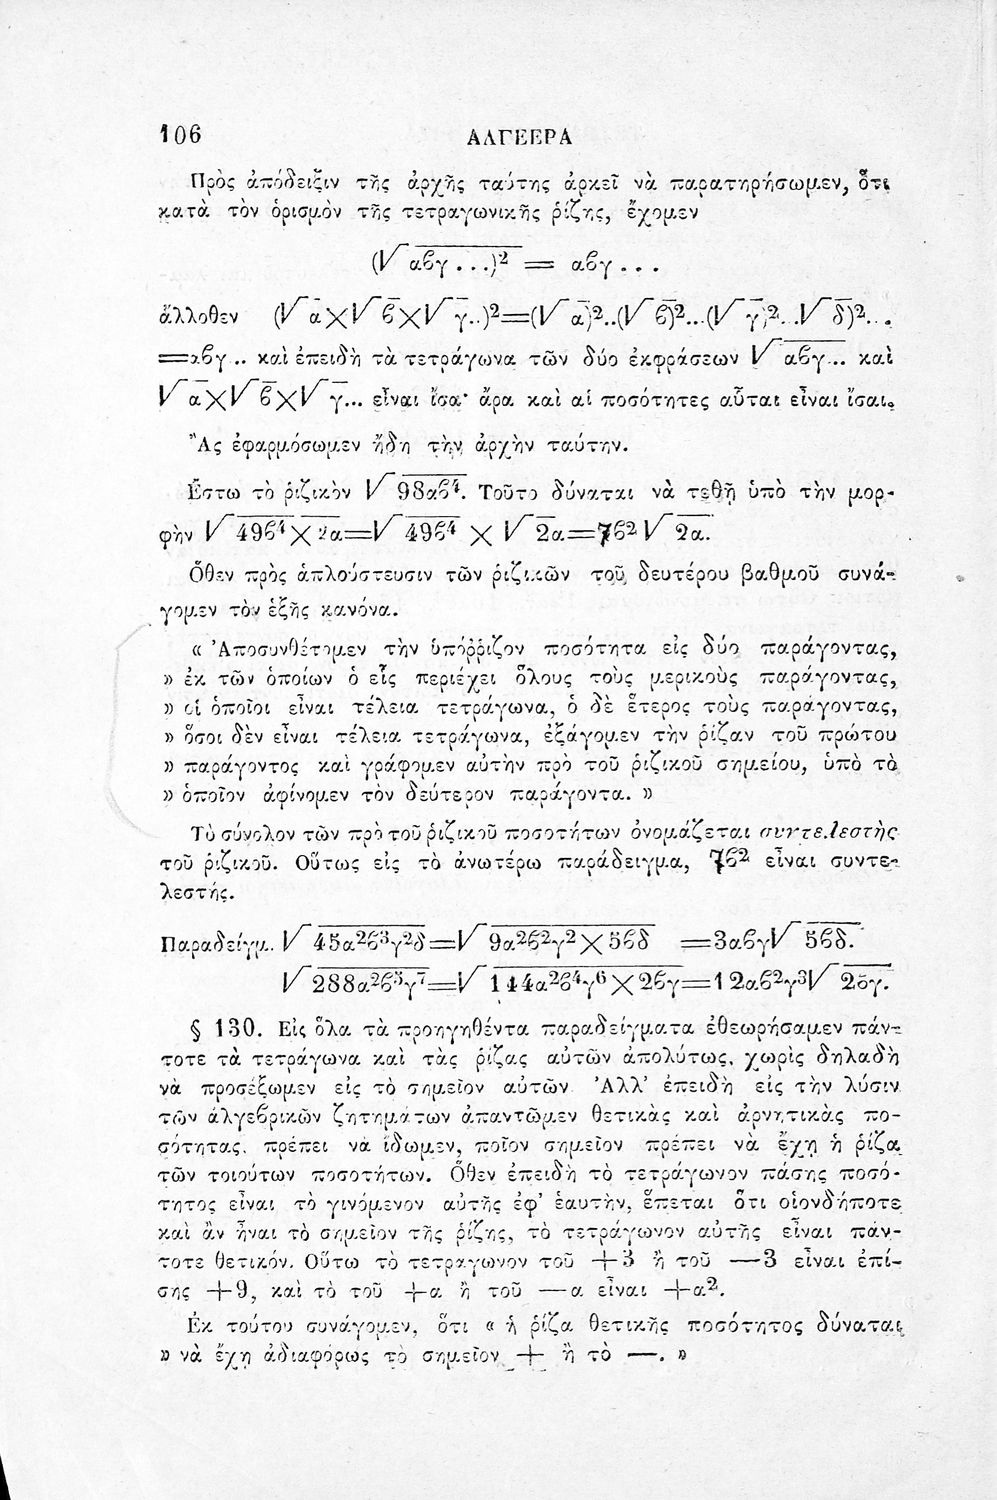 106 ΑΛΓΕΕΡΑ
Πρὸς ἀπόδειξιν τῆς ἀρχῆς ταύτης ἀρκεῖ νὰ παρατηρήσωμεν, ὅτι
κατὰ τὸν ὁρισμὸν τῆς τετραγωνικῆς ῥίζης, ἔχομεν
(√αϐγ...)² = αϐγ...
ἄλλοθεν (√α×√ϐ×√γ..)²=(√α)²..(√ϐ)²...(√γ)²...√δ)²...
=αϐγ.. καὶ ἐπειδὴ τὰ τετράγωνα τῶν δύο ἐκφράσεων √αϐγ... καὶ
√α×√ϐ×√γ... εἶναι ἴσα· ἄρα καὶ αἱ ποσότητες αὗται εἶναι ἴσαι.
Ἂς ἐφαρμόσωμεν ἤδη τὴν ἀρχὴν ταύτην.
Ἔστω τὸ ῥιζικὸν √98αϐ⁴. Τοῦτο δύναται νὰ τεθῇ ὑπὸ τὴν μορ-
φὴν √49ϐ⁴×2α=√49ϐ⁴ × √2α=7ϐ²√2α.
Ὅθεν πρὸς ἁπλούστευσιν τῶν ῥιζικῶν τοῦ δευτέρου βαθμοῦ συνά-
γομεν τὸν ἑξῆς κανόνα.
« Ἀποσυνθέτομεν τὴν ὑπόῤῥιζον ποσότητα εἰς δύο παράγοντας,
» ἐκ τῶν ὁποίων ὁ εἷς περιέχει ὅλους τοὺς μερικοὺς παράγοντας,
» οἱ ὁποῖοι εἶναι τέλεια τετράγωνα, ὁ δὲ ἕτερος τοὺς παράγοντας,
» ὅσοι δὲν εἶναι τέλεια τετράγωνα, ἐξάγομεν τὴν ῥίζαν τοῦ πρώτου
» παράγοντος καὶ γράφομεν αὐτὴν πρὸ τοῦ ῥιζικοῦ σημείου, ὑπὸ τὸ
» ὁποῖον ἀφίνομεν τὸν δεύτερον παράγοντα. »
Τὸ σύνολον τῶν πρὸ τοῦ ῥιζικοῦ ποσοτήτων ὀνομάζεται συντελεστὴς
τοῦ ῥιζικοῦ. Οὕτως εἰς τὸ ἀνωτέρω παράδειγμα, 7ϐ² εἶναι συντε-
λεστής.
Παραδείγμ. √45α²ϐ³γ²δ=√9α²ϐ²γ²×5ϐδ =3αϐγ√5ϐδ.
√288α²ϐ⁵γ⁷=√144α²ϐ⁴γ⁶×2ϐγ=12αϐ²γ³√2ϐγ.
§ 130. Εἰς ὅλα τὰ προηγηθέντα παραδείγματα ἐθεωρήσαμεν πάν-
τοτε τὰ τετράγωνα καὶ τὰς ῥίζας αὐτῶν ἀπολύτως, χωρὶς δηλαδὴ
νὰ προσέξωμεν εἰς τὸ σημεῖον αὐτῶν. Ἀλλ’ ἐπειδὴ εἰς τὴν λύσιν
τῶν ἀλγεϐρικῶν ζητημάτων ἀπαντῶμεν θετικὰς καὶ ἀρνητικὰς πο-
σότητας, πρέπει νὰ ἴδωμεν, ποῖον σημεῖον πρέπει νὰ ἔχῃ ἡ ῥίζα
τῶν τοιούτων ποσοτήτων. Ὅθεν ἐπειδὴ τὸ τετράγωνον πάσης ποσό-
τητος εἶναι τὸ γινόμενον αὐτῆς ἐφ’ ἑαυτὴν, ἕπεται ὅτι οἱονδήποτε
καὶ ἂν ᾖναι τὸ σημεῖον τῆς ῥίζης, τὸ τετράγωνον αὐτῆς εἶναι πάν-
τοτε θετικόν. Οὕτω τὸ τετράγωνον τοῦ +3 ἢ τοῦ —3 εἶναι ἐπί-
σης +9, καὶ τὸ τοῦ +α ἢ τοῦ —α εἶναι +α².
Ἐκ τούτου συνάγομεν, ὅτι « ἡ ῥίζα θετικῆς ποσότητος δύναται
» νὰ ἔχῃ ἀδιαφόρως τὸ σημεῖον + ἢ τὸ —. »